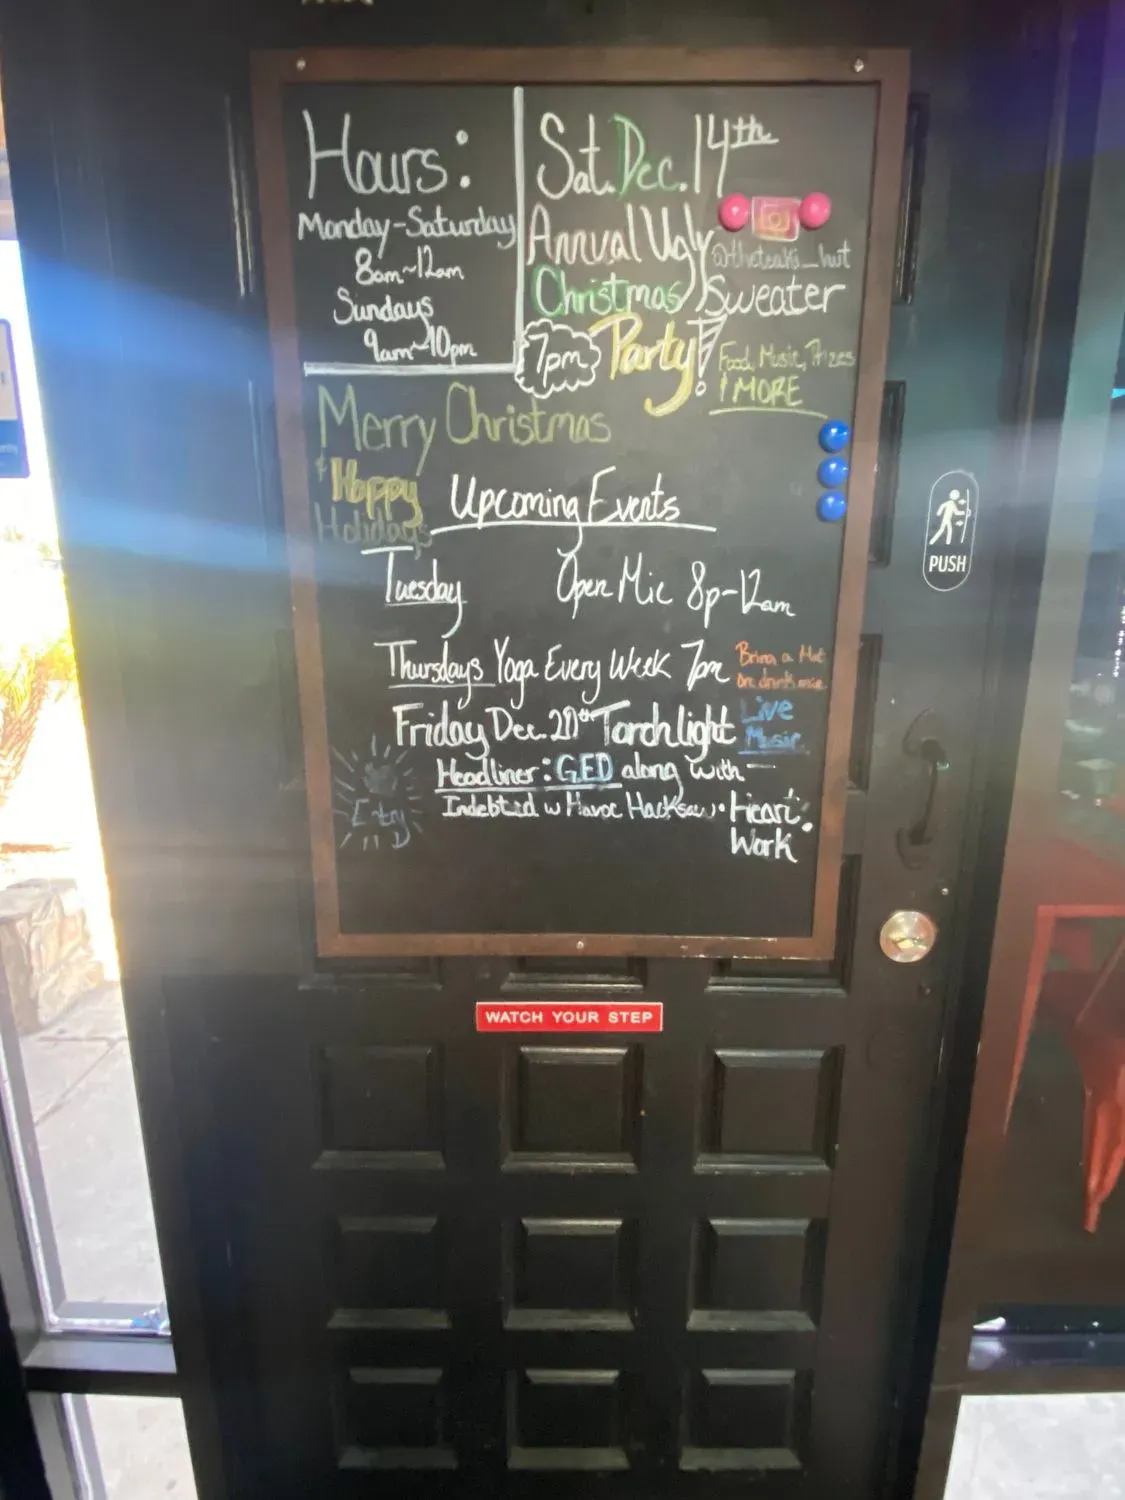 Hours:
Monday-Saturday
8am~12am
Sundays
9am~10pm
Sat. Dec. 14th
Annual Ugly
@theteaki_hut
Christmas Sweater
7pm Party!
Food, Music, Prizes
& MORE
Merry Christmas
& Happy
Holidays
Upcoming Events
Tuesday Open Mic 8p-12am
Thursdays Yoga Every Week 7pm
Bring a Mat
Friday Dec. 20th Torchlight
Live
Music
Headliner: GED along with
Indebted w Havoc Hacksaw • Heart
Work
Entry
PUSH
WATCH YOUR STEP